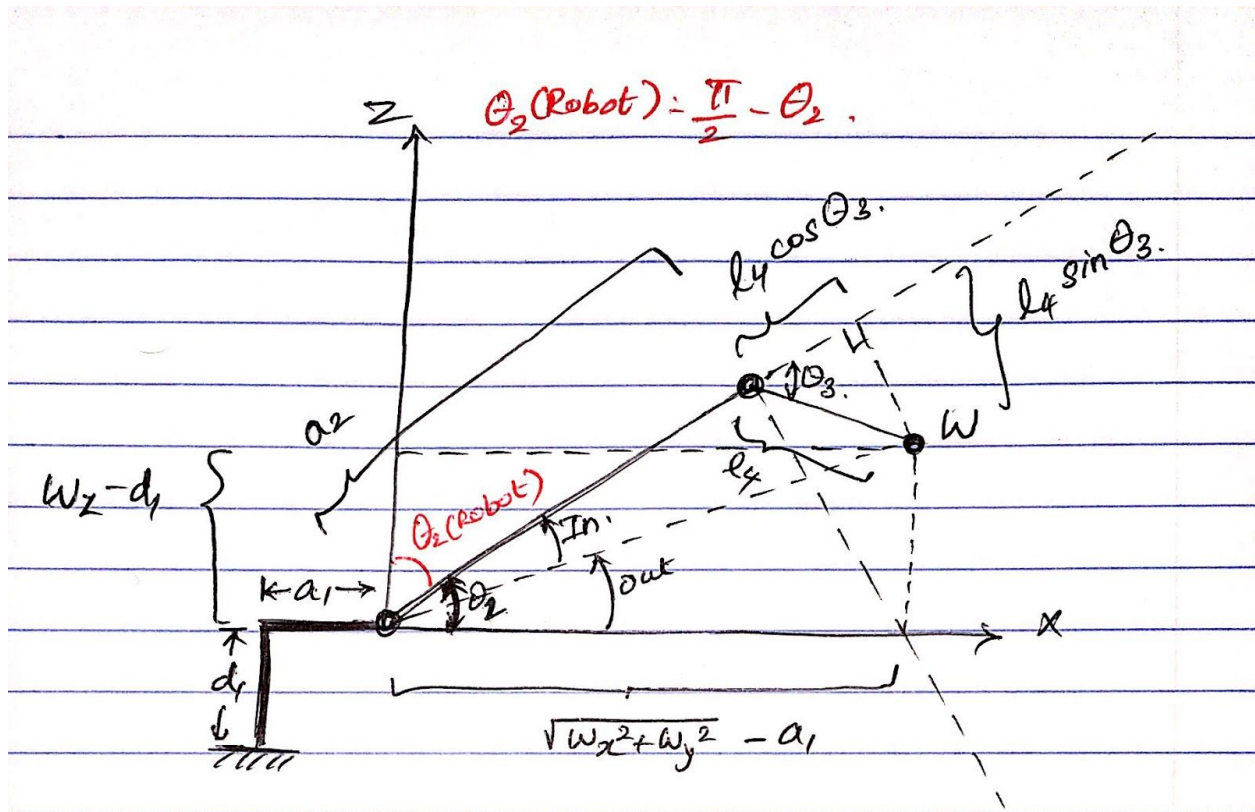 θ₂(Robot) = π/2 - θ₂ .
Z
l₄ cosθ₃.
l₄ sinθ₃.
θ₃.
a₂
W
l₄
W_z - d₁
θ₂(Robot)
In.
out
θ₂
a₁
X
d₁
√(W_x² + W_y²) - a₁